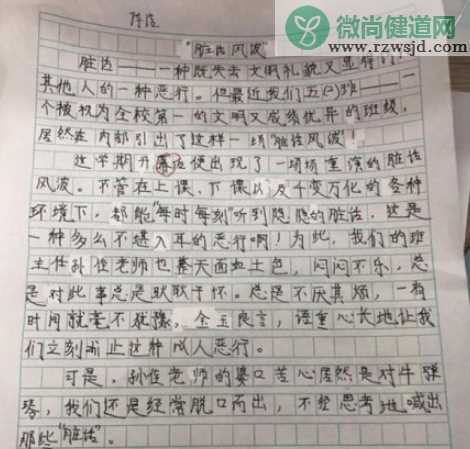 微尚健道网
www.rzwsjd.com
"脏话风波"
脏话——一种既失去文明礼貌又
其他人的一种恶行。但最近我们五(一)班——一
个被视为全校第一的文明又成绩优异的班级,
居然在内部引出了这样一场"脏话风波"!
这学期开 便出现了一场场重演的脏话
风波。不管在上课、下课以及千变万化的各种
环境下,都能"每时每刻"听到隐隐的脏话,这是
一种多么不堪入耳的恶行啊!为此,我们的班
主任孙佳老师也整天面如土色,闷闷不乐,总
是对此事总是耿耿于怀。总是不厌其烦,一有
时间就毫不犹豫,金玉良言,语重心长地让我
们立刻 止这种 人恶行。
可是,孙佳老师的婆口苦心居然是对牛弹
琴,我们还是经常脱口而出,不经思考地喊出
那些"脏话"。